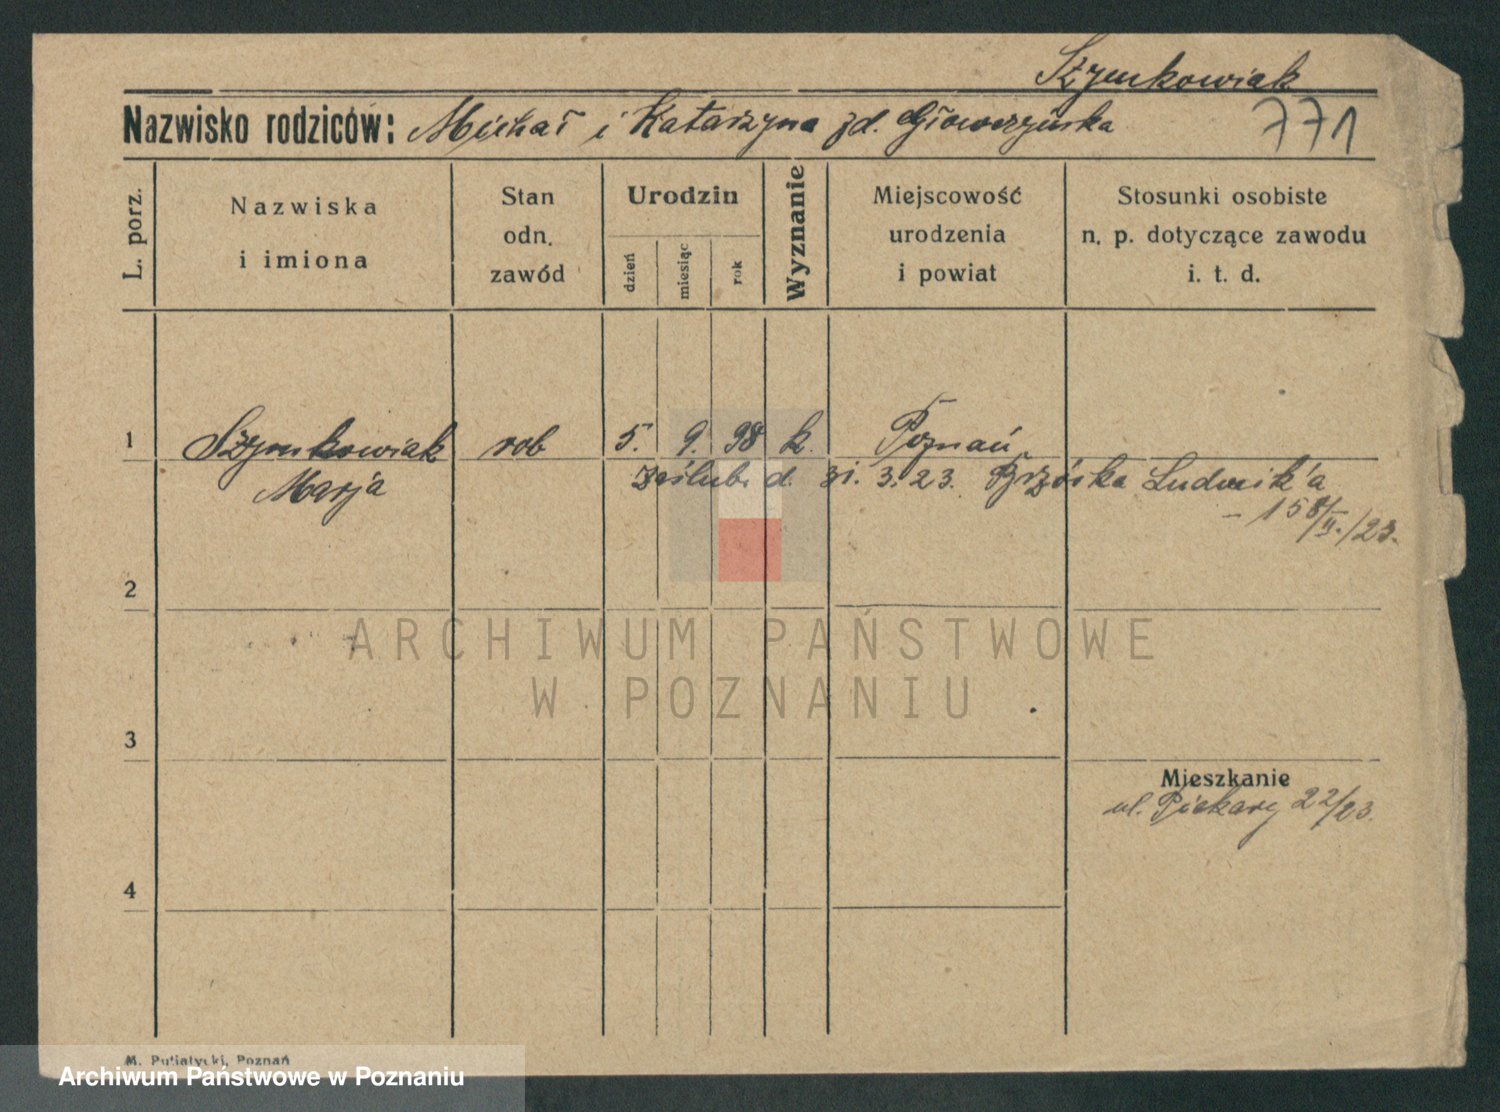 Szymkowiak
Nazwisko rodziców: Michał i Katarzyna zd. Głowczyńska
771
L. porz.
Nazwiska
i imiona
Stan
odn.
zawód
Urodzin
dzień
miesiąc
rok
Wyznanie
Miejscowość
urodzenia
i powiat
Stosunki osobiste
n. p. dotyczące zawodu
i. t. d.
1 Szymkowiak rob 5. 9. 98 k. Poznań
Marja
zaślub. d. 31. 3. 23. Brzóska Ludwik'a
- 158/II./23.
2
3
Mieszkanie
ul. Piekary 22/23.
4
M. Putiatycki, Poznań
ARCHIWUM PAŃSTWOWE
W POZNANIU
Archiwum Państwowe w Poznaniu